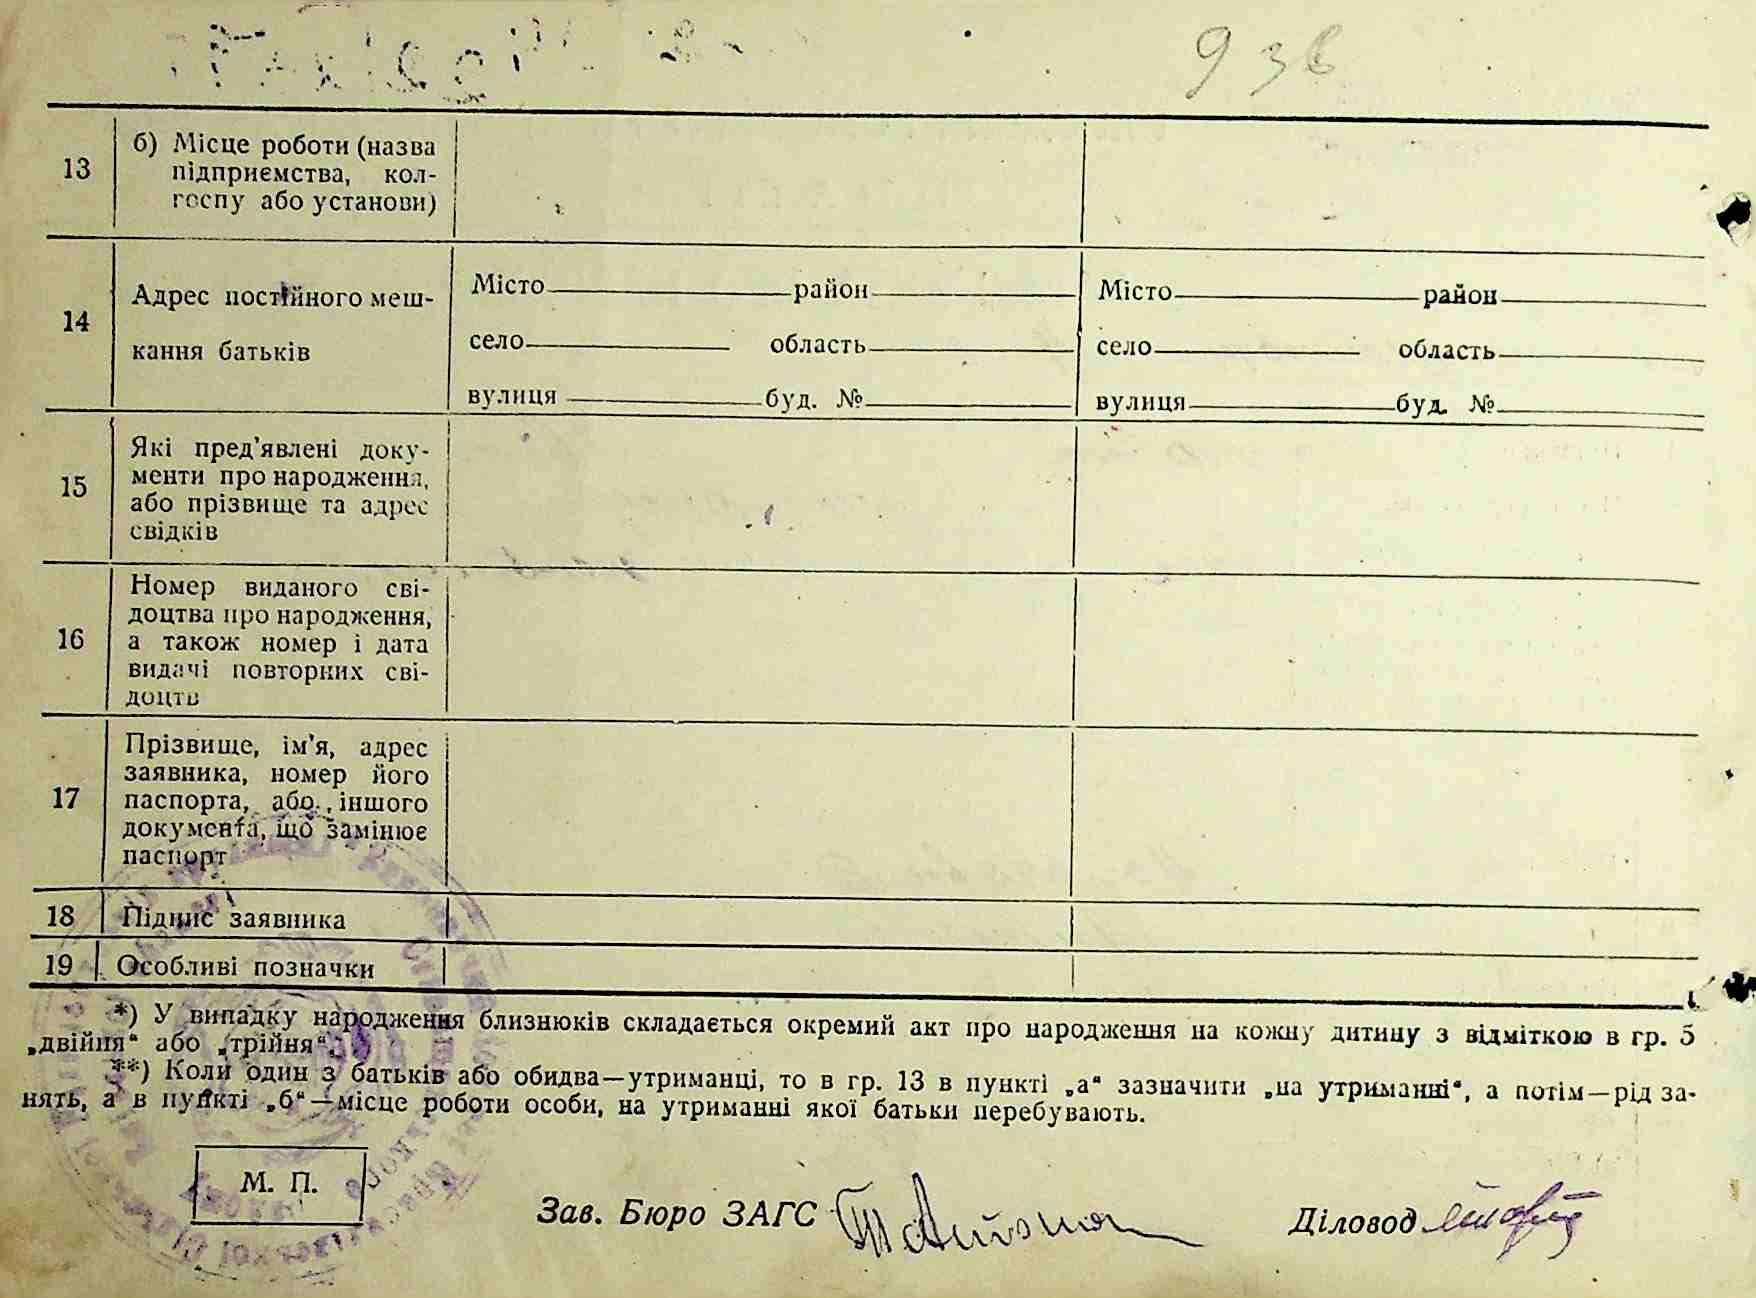 93в
13
б) Місце роботи (назва
підприємства, кол-
госпу або установи)
14
Адрес постійного меш-
кання батьків
Місто район
село область
вулиця буд. №
Місто район
село область
вулиця буд. №
15
Які пред'явлені доку-
менти про народження,
або прізвище та адрес
свідків
16
Номер виданого сві-
доцтва про народження,
а також номер і дата
видачі повторних сві-
доцтв
17
Прізвище, ім'я, адрес
заявника, номер його
паспорта, або іншого
документа, що замінює
паспорт
18
Підпис заявника
19
Особливі позначки
*) У випадку народження близнюків складається окремий акт про народження на кожну дитину з відміткою в гр. 5
„двійня“ або „трійня“.
**) Коли один з батьків або обидва—утриманці, то в гр. 13 в пункті „а“ зазначити „на утриманні“, а потім—рід за-
нять, а в пункті „б“—місце роботи особи, на утриманні якої батьки перебувають.
М. П.
Зав. Бюро ЗАГС
Діловод